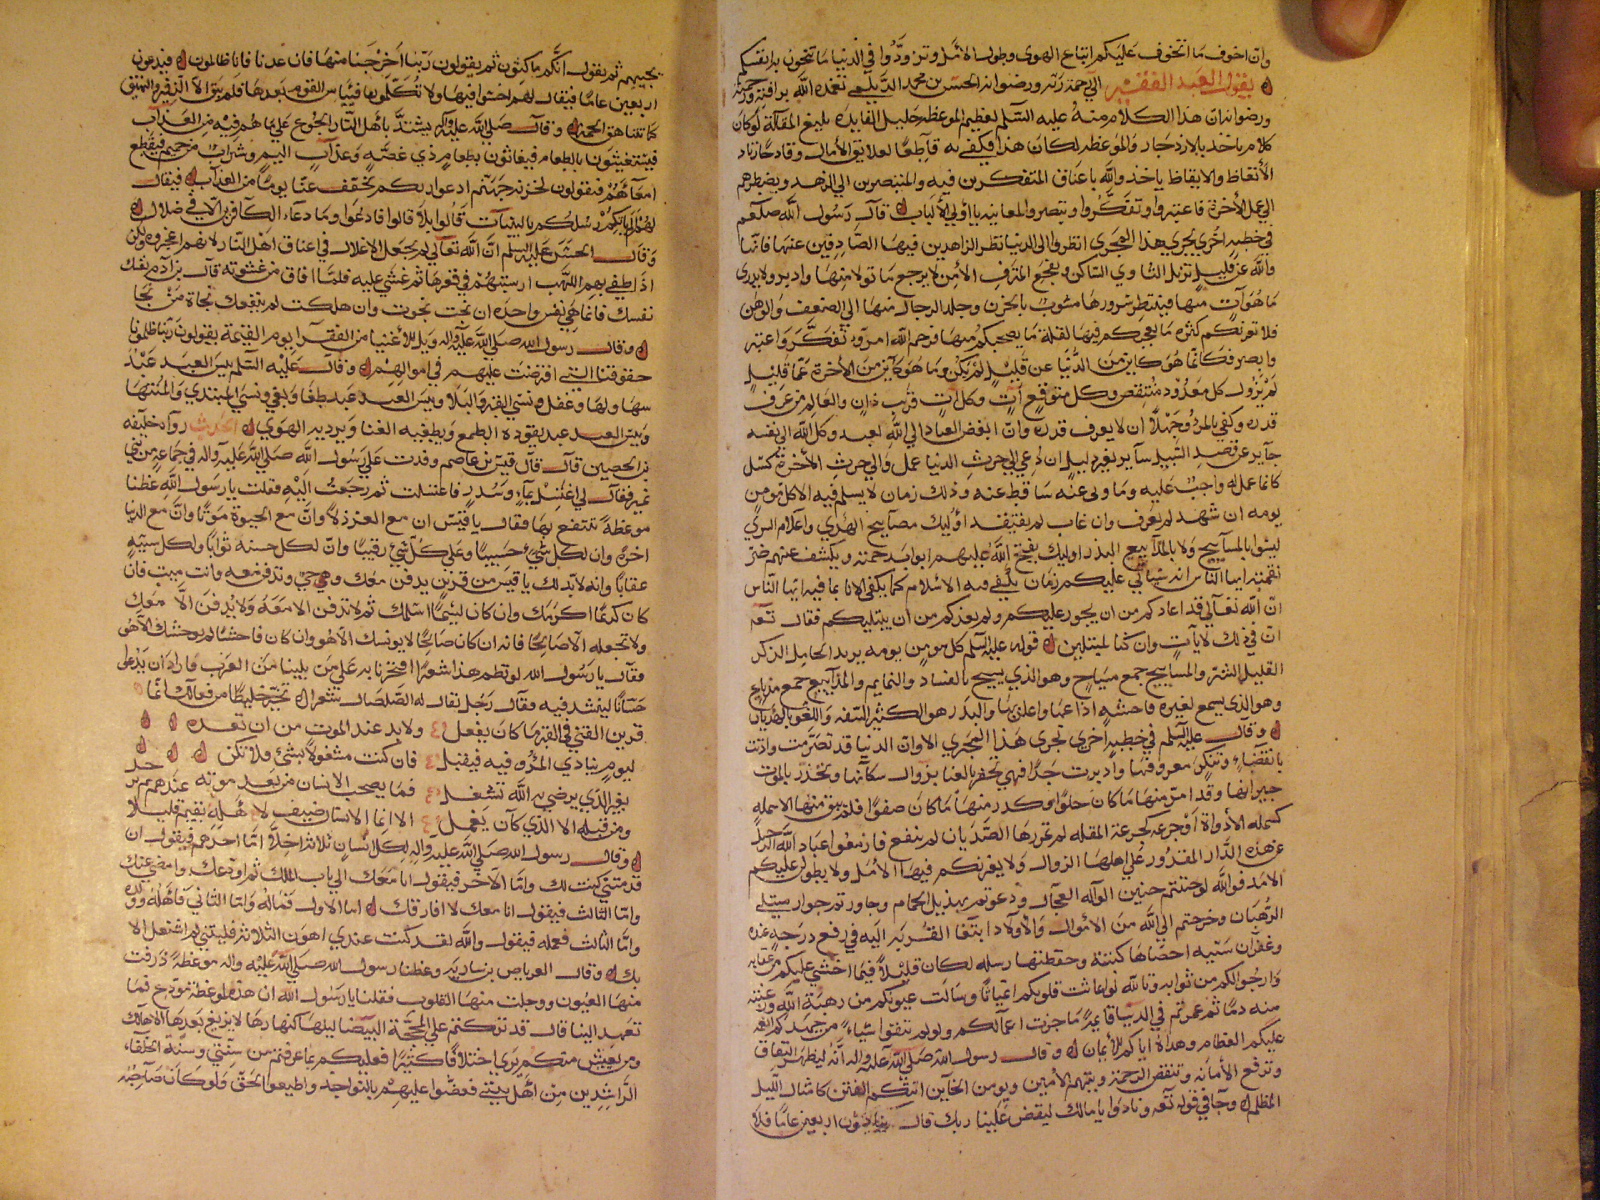 وان اخوف ما اتخوف عليكم اتباع الهوى وطول الامل وتزودوا في الدنيا ما تنجون به انفسكم
يقول العبد الفقير الى رحمة ربه ورضوانه الحسن بن محمد الديلمي تغمده الله برافته ورحمته
ورضوانه ان هذا الكلام منه عليه السلم لعظيم الموعظه جليل الفايده بليغ المقالة لو كان
كلام ياخذ بالازدجار والموعظه لكان هذا فكفى به قاطعا لعلايق الآمال وقادحا زناد
الاتعاظ والايقاظ ياخذ والله باعناق المتفكرين فيه والمتبصرين الى الزهد ويضطرهم
الى عمل الآخرة فاعتبروا وتفكروا وتبصروا لمعانيه يا اولي الالباب وقال رسول الله صلعم
في خطبه اخرى يجرى هذا المجرى انظروا الى الدنيا نظر الزاهدين فيها الصادقين عنها فانها
والله عن قليل تزيل الثاوي الساكن وتفجع المترف الآمن لا يرجع ما تولى منها وادبر ولا يدرى
ما هو آت منها فينتظر سرورها مشوب بالحزن وجلد الرجال منها الى الضعف والوهن
فلا تغرنكم كثره ما يعجبكم فيها لقلة ما يصحبكم منها فرحم الله امرء تفكر واعتبر
وابصر فكانما هو كاين من الدنيا عن قليل لم يكن وما هو كاين من الآخرة عما قليل
لم يزول وكل معدود منتقص وكل متوقع آت وكل آت قرب دان والعالم من عرف
قدره وكفى بالمرء جهلا ان لا يعرف قدره وان ابغض العباد الى الله لعبد وكله الله الى نفسه
جاير عن قصد السبيل ساير بغير دليل ان دعي الى حرث الدنيا عمل والى حرث الآخرة كسل
كانما عمل له واجب عليه وما ونى عنه ساقط عنه وذلك زمان لا يسلم فيه الا كل مومن
يومه ان شهد لم يعرف وان غاب لم يفتقد اوليك مصابيح الهدي واعلام السري
ليسوا بالمسابيح ولا بالمذاييع البذر اوليك يفتح الله عليهم ابواب رحمته ويكشف عنهم ضر
نقمته ايها الناس انه سياتي عليكم زمان يكفى فيه الاسلام كما يكفى الانا بما فيه ايها الناس
ان الله تعالى قد اعاذكم من ان يجور عليكم ولم يعذكم من ان يبتليكم فقال تعه
ان في ذلك لآيات وان كنا لمبتلين قوله عليه السلم كل مومن يومه يريد الخامل الذكر
القليل الشر والمساييح جمع مسياح وهو الذي يسيح بالفساد والنمايم والمذاييع جمع مذياع
وهو الذي يسمع لغيره فاحشه اذاعها واعلن بها والبذر هو الكثير السفه واللغو بالهذيان
وقال عليه السلم في خطبه اخرى تجرى هذا المجرى الاوان الدنيا قد تصرمت واذنت
بانقضاء وتنكر معروفها وادبرت جدا فهي تحفز بالفنا بزوال سكانها وتحذر بالموت
جيرانها وقد امر منها ما كان حلوا وكدر منها ما كان صفوا فلم يبق منها الا سمله
كسمله الأدواة او جرعه كجرعة المقله لو تمززها الصديان لم ينفع فازمعوا عباد الله الرحيل
عن هذه الدار المقدور على اهلها الزوال ولا يغرنكم فيها الأمل ولا يطول عليكم
الامد فوالله لو حننتم حنين الواله العجال ودعوتم بهديل الحمام وجاورتم جوار متبتلي
الرهبان وخرجتم الى الله من الأموال والأولاد ابتغا القربه اليه في رفع درجه عنده
وغفران سيئه احصاها كتبته وحفظتها رسله لكان قليلا فيما اخشى عليكم من عقابه
وارجوا لكم من ثوابه وتالله لو انماثت قلوبكم انمياثا وسالت عيونكم من رهبة الله ورغبته
منه دما ثم عمرتم في الدنيا ما جزت اعمالكم ولو لم تبقوا شياء من جهدكم انعمه
عليكم العظام وهداه اياكم للايمان وقال رسول الله صلى الله عليه واله انه ليظهر النفاق
وترفع الأمانه وتنقض الرحمة ويتهم الأمين ويومن الخاين اتتكم الفتن كامثال الليل
المظلم وجا في قوله تعه ونادوا يا مالك ليقض علينا ربك قال ينادون اربعين عاما فلا
يجيبهم ثم يقول انكم ماكثون ثم يقولون ربنا اخرجنا منها فان عدنا فانا ظالمون فيدعون
اربعين عاما فيقال لهم اخسوا فيها ولا تكلمون فييأس القوم بعدها فلم يبق الا الزفير والشهيق
كما تتناهق الحمر وقال صلى الله عليه واله يشتد باهل النار الجوع على ما هم فيه من العذاب
فيستغيثون بالطعام فيغاثون بطعام ذي غصه وعذاب اليم وشراب من حميم فيقطع
امعآءهم فيقولون لخزنه جهنم ادعوا ربكم يخفف عنا يوما من العذاب فيقال
لهم اولم تاتكم رسلكم بالبينات قالوا بلا قالوا فادعوا وما دعاء الكافرين الا في ضلال
وقال الحسن عليه السلم ان الله تعالى لم يجعل الاغلال في اعناق اهل النار لانهم اعجزوه ولكن
اذا طفى بهم اللهب ارسبتهم في قعرها ثم غشي عليه فلما افاق من غشوته قال يا بن آدم نفسك
نفسك فانما هي نفس واحده ان نجت نجوت وان هلكت لم ينفعك نجاة من نجا
وقال رسول الله صلى الله عليه وآله ويل للأغنيا من الفقرا يوم القيمة يقولون ربنا ظلمونا
حقوقنا التي افرضت عليهم في اموالهم وقال عليه السلم بيس العبد عبد
سها ولها وغفل ونسي القبر والبلا وبيس العبد عبد طغا وبغى ونسي المبتدى والمنتها
وبيس العبد عبد يقوده الطمع ويطغيه الغنا ويرديه الهوى الحديث رواه خليفه
بن الحصين قال قال قيس بن عاصم وفدت على رسول الله صلى الله عليه واله في جماعة من بني
تميم فقال لي اغتسل بماء وسدر فاغتسلت ثم رجعت اليه فقلت يا رسول الله عظنا
موعظة ننتفع بها فقال يا قيس ان مع العز ذلا وان مع الحيوة موتا وان مع الدنيا
اخرة وان لكل شيء حسيبا وعلى كل شئ رقيبا وان لكل حسنه ثوابا ولكل سيئه
عقابا وانه لابد لك يا قيس من قرين يدفن معك وهو حي وتدفن معه وانت ميت فان
كان كريما اكرمك وان كان ليئما اسلمك ثم لا تدفن الا معه ولا يدفن الا معك
ولا تجعله الا صالحا فانه ان كان صالحا لا يونسك الا هو وان كان فاحشا لم يوحشك الا هو
وقال يا رسول الله لو نظم هذا شعرا افتخرنا به على من يلينا من العرب فاراد ان يدعى
حسانا لينشد فيه فقال رجل يقال له الصلصال شعرا تخير خليطا من فعالك انما
قرين الفتى في القبر ما كان يفعل ولا بد عند الموت من ان تعده
ليوم ينادي المرؤ فيه فيقبل فان كنت مشغولا بشئ فلا تكن
بغير الذي يرضي به الله تشغل فما يصحب الانسان من بعد موته
ومن قبله الا الذي كان يعمل الا انما الانسان ضيف لاهله يقيم قليلا عندهم ثم يرحل
وقال رسول الله صلى الله عليه واله لكل انسان ثلاثة اخلآء اما احدهم فيقول ان
قدمتني كنت لك واما الآخر فيقول انا معك الى باب الملك ثم اودعك وامضي عنك
واما الثالث فيقول انا معك لا افارقك اما الاول فماله واما الثاني فأهله وولده
واما الثالث فعمله فيقول والله لقد كنت عندي اهون الثلاثة فليتني لم اشتغل الا
بك وقال العرباض بن ساريه وعظنا رسول الله صلى الله عليه واله موعظة ذرفت
منها العيون ووجلت منها القلوب فقلنا يا رسول الله ان هذه لموعظة مودع فما
تعهد الينا قال قد تركتكم على المحجة البيضا ليلها كنهارها لا يزيغ بعدها الا هالك
ومن يعيش منكم يرى اختلافا كثيرا فعليكم بما عرفتم من سنتي وسنة الخلفاء
الراشدين من أهل بيتي فعضوا عليهم بالنواجد واطيعوا الحق ولو كان صاحبه